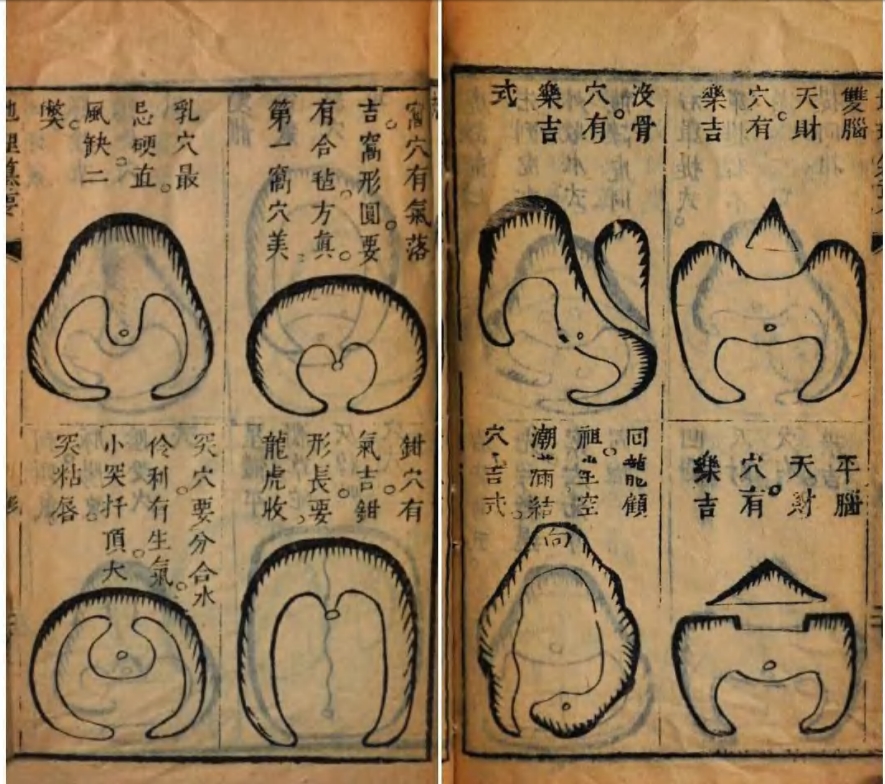 雙腦
天財
穴有
樂吉
沒骨
穴有
樂吉
式
平腦
天財
穴有
樂吉
回龍顧
祖坐空
潮滿結
穴吉式
向
窩穴有氣落
吉窩形圓要
有合毡方真
第一窩穴美
乳穴最
忌硬直
風缺二
鉗穴有
氣吉鉗
形長要
龍虎收
突穴要分合水
伶利有生氣
小突扦頂大
突粘唇
地理